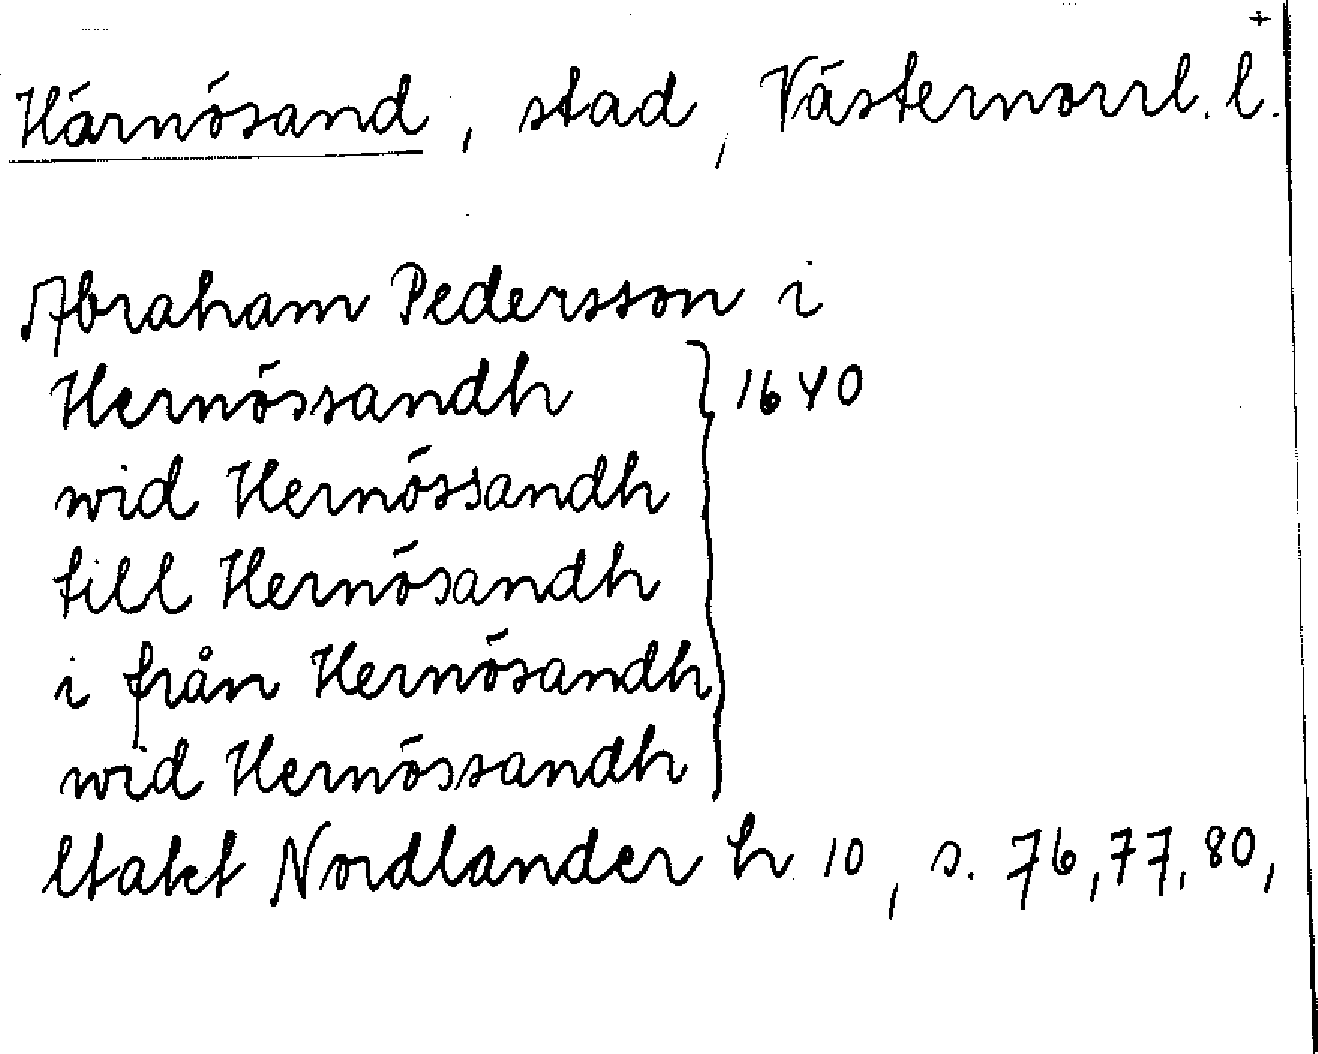 +
Härnösand, stad, Västernorrl. l.
Abraham Pedersson i
Hernössandh } 1640
wid Hernössandh
till Hernösandh
i från Hernösandh
wid Hernössandh
Nordlander h 10, s. 76, 77, 80,